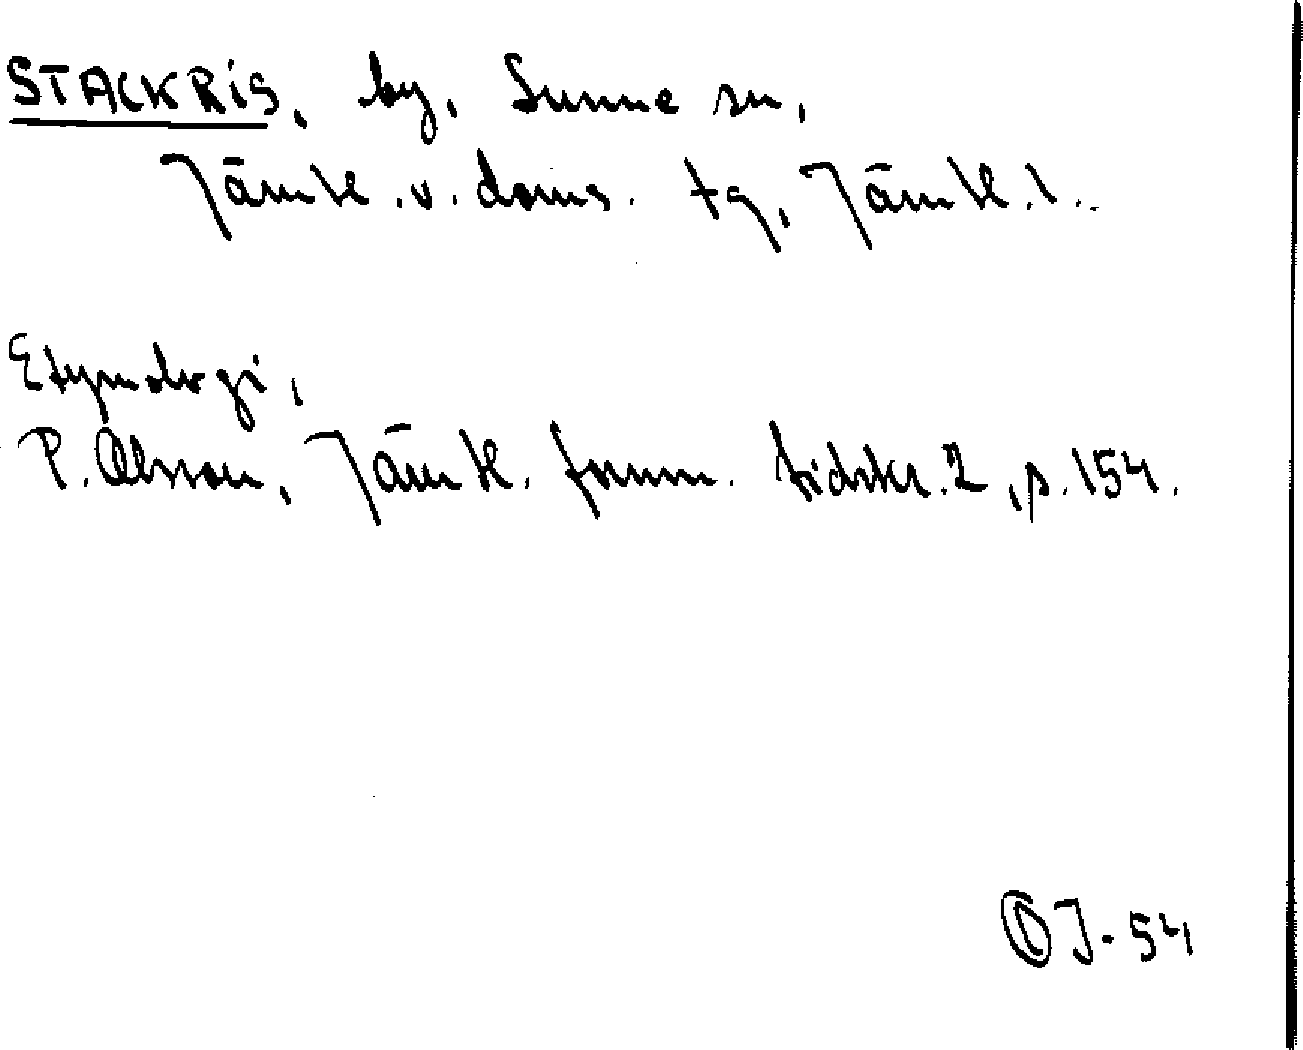 STACKRIS, by, Sunne sn,
Jämtl. v. doms. tg, Jämtl. l..
Etymologi,
P. Olsson, Jämtl. fornm. tidskr. 2, p. 154.
ÖJ-54